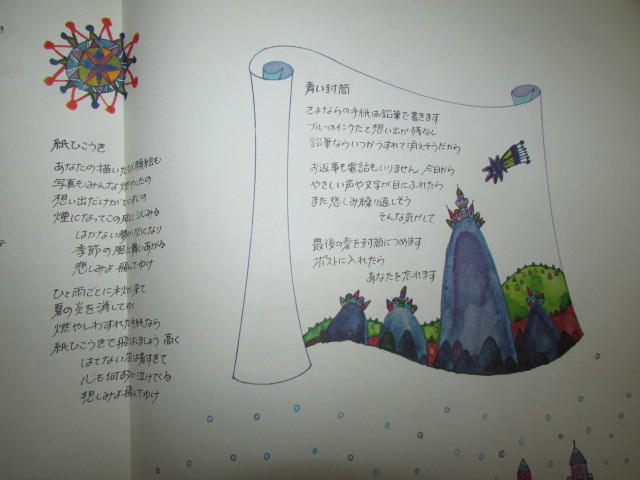 紙ひこうき
あなたの描いた似顔絵も
写真もみんな燃やしたの
想い出だけがくすぶり
煙になってこの目にしみる
はかない夢が灰になり
季節の風に舞いあがる
悲しみよ 飛んでゆけ
ひと雨ごとに秋が来て
夏の炎を消してゆく
燃やしわすれた手紙なら
紙ひこうきで飛ばしましょう 高く
はてない空は青すぎて
心も何故か泣けてくる
悲しみよ 飛んでゆけ
青い封筒
さよならの手紙は鉛筆で書きます
ブルーのインクだと想い出が残るし
鉛筆ならいつかうすれて消えそうだから
お返事も電話もいりません 今日から
やさしい声や文字が目にふれたら
また悲しみ繰り返しそう
そんな気がして
最後の愛を封筒につめます
ポストに入れたら
あなたを忘れます